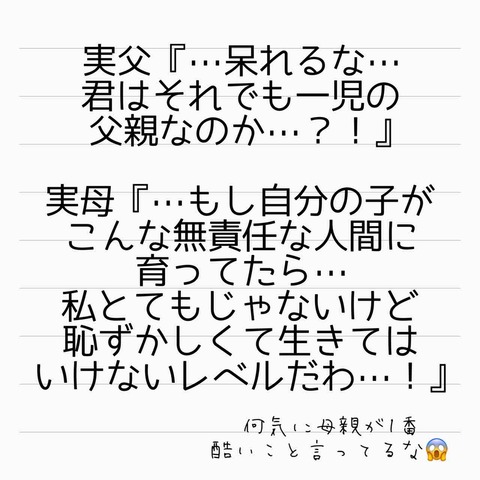 実父『…呆れるな…
君はそれでも一児の
父親なのか…？！』
実母『…もし自分の子が
こんな無責任な人間に
育ってたら…
私とてもじゃないけど
恥ずかしくて生きては
いけないレベルだわ…！』
何気に母親が1番
酷いこと言ってるな😱